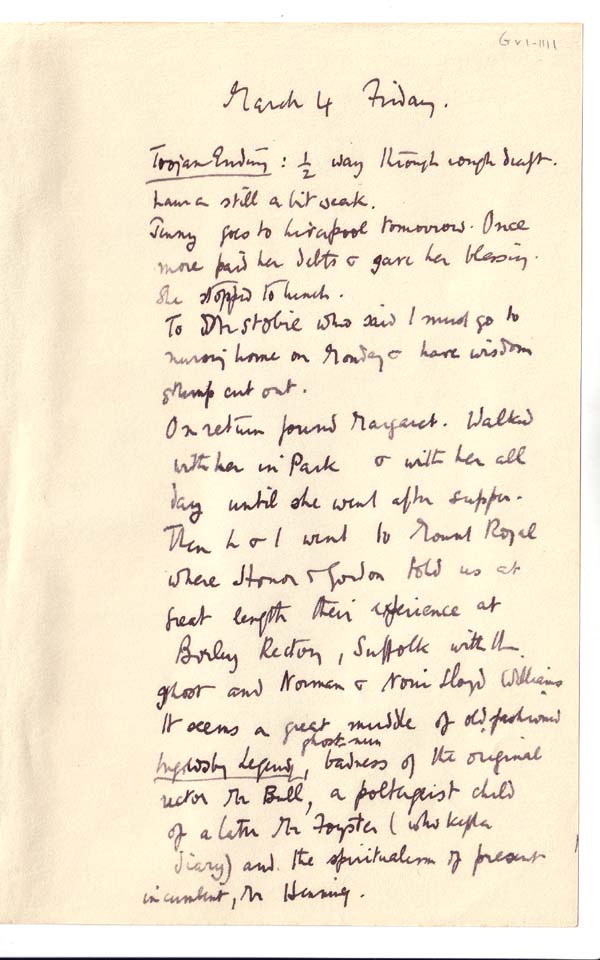 GVI-1111
March 4 Friday.
Trojan Ending : ½ way through rough draft.
Laura still a bit weak.
Jenny goes to Liverpool tomorrow. Once
more paid her debts & gave her blessing.
She stopped to lunch.
To Dr Stobie who said I must go to
nursing home on Monday & have wisdom
stump cut out.
On return found Margaret. Walked
with her in Park & with her all
day until she went after supper.
Then L & I went to Mount Royal
where Honor & Gordon told us at
great length their experience at
Borley Rectory, Suffolk with the
ghost and Norman & Lloyd Williams
It seems a great muddle of old fashioned
ghost-nun
Ingoldsby Legend, badness of the original
rector Mr Bull, a poltergeist child
of a later Mr Foyster (who kept a
diary) and the spiritualism of present
incumbent, Mr Henning.